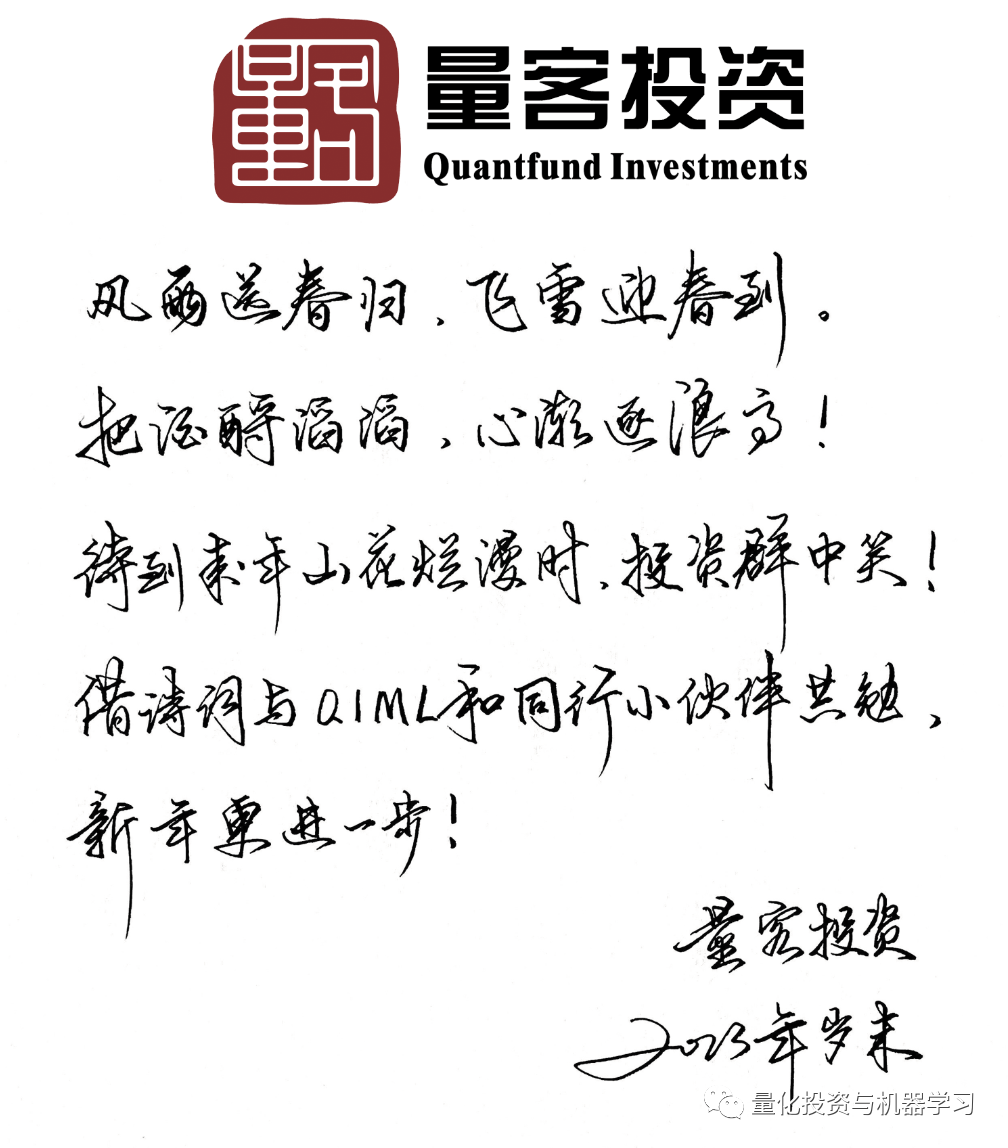 量客投资
Quantfund Investments
风雨送春归，飞雪迎春到。
把酒酹滔滔，心潮逐浪高！
待到来年山花烂漫时，投资群中笑！
借诗词与QIML和同行小伙伴共勉，
新年更进一步！
量客投资
2023年岁末
量化投资与机器学习